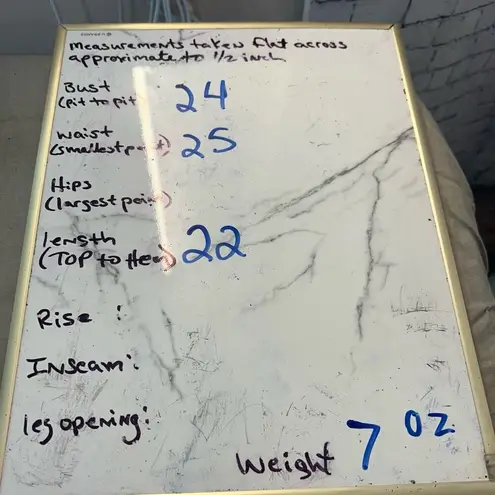 Measurements taken flat across
approximate to 1/2 inch
Bust
(pit to pit 24
waist
(smallest point) 25
Hips
(largest point)
length
(TOP to Hem) 22
Rise :
Inseam:
leg opening:
Weight 7 oz